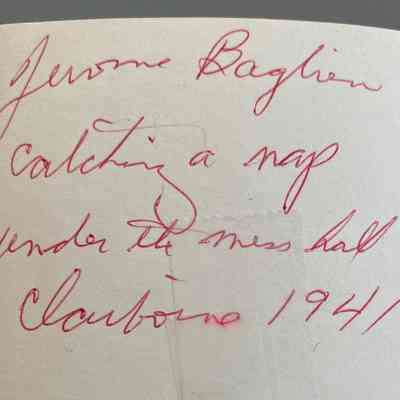 Jerome Baglien
catching a nap
under the mess hall
Claiborne 1941